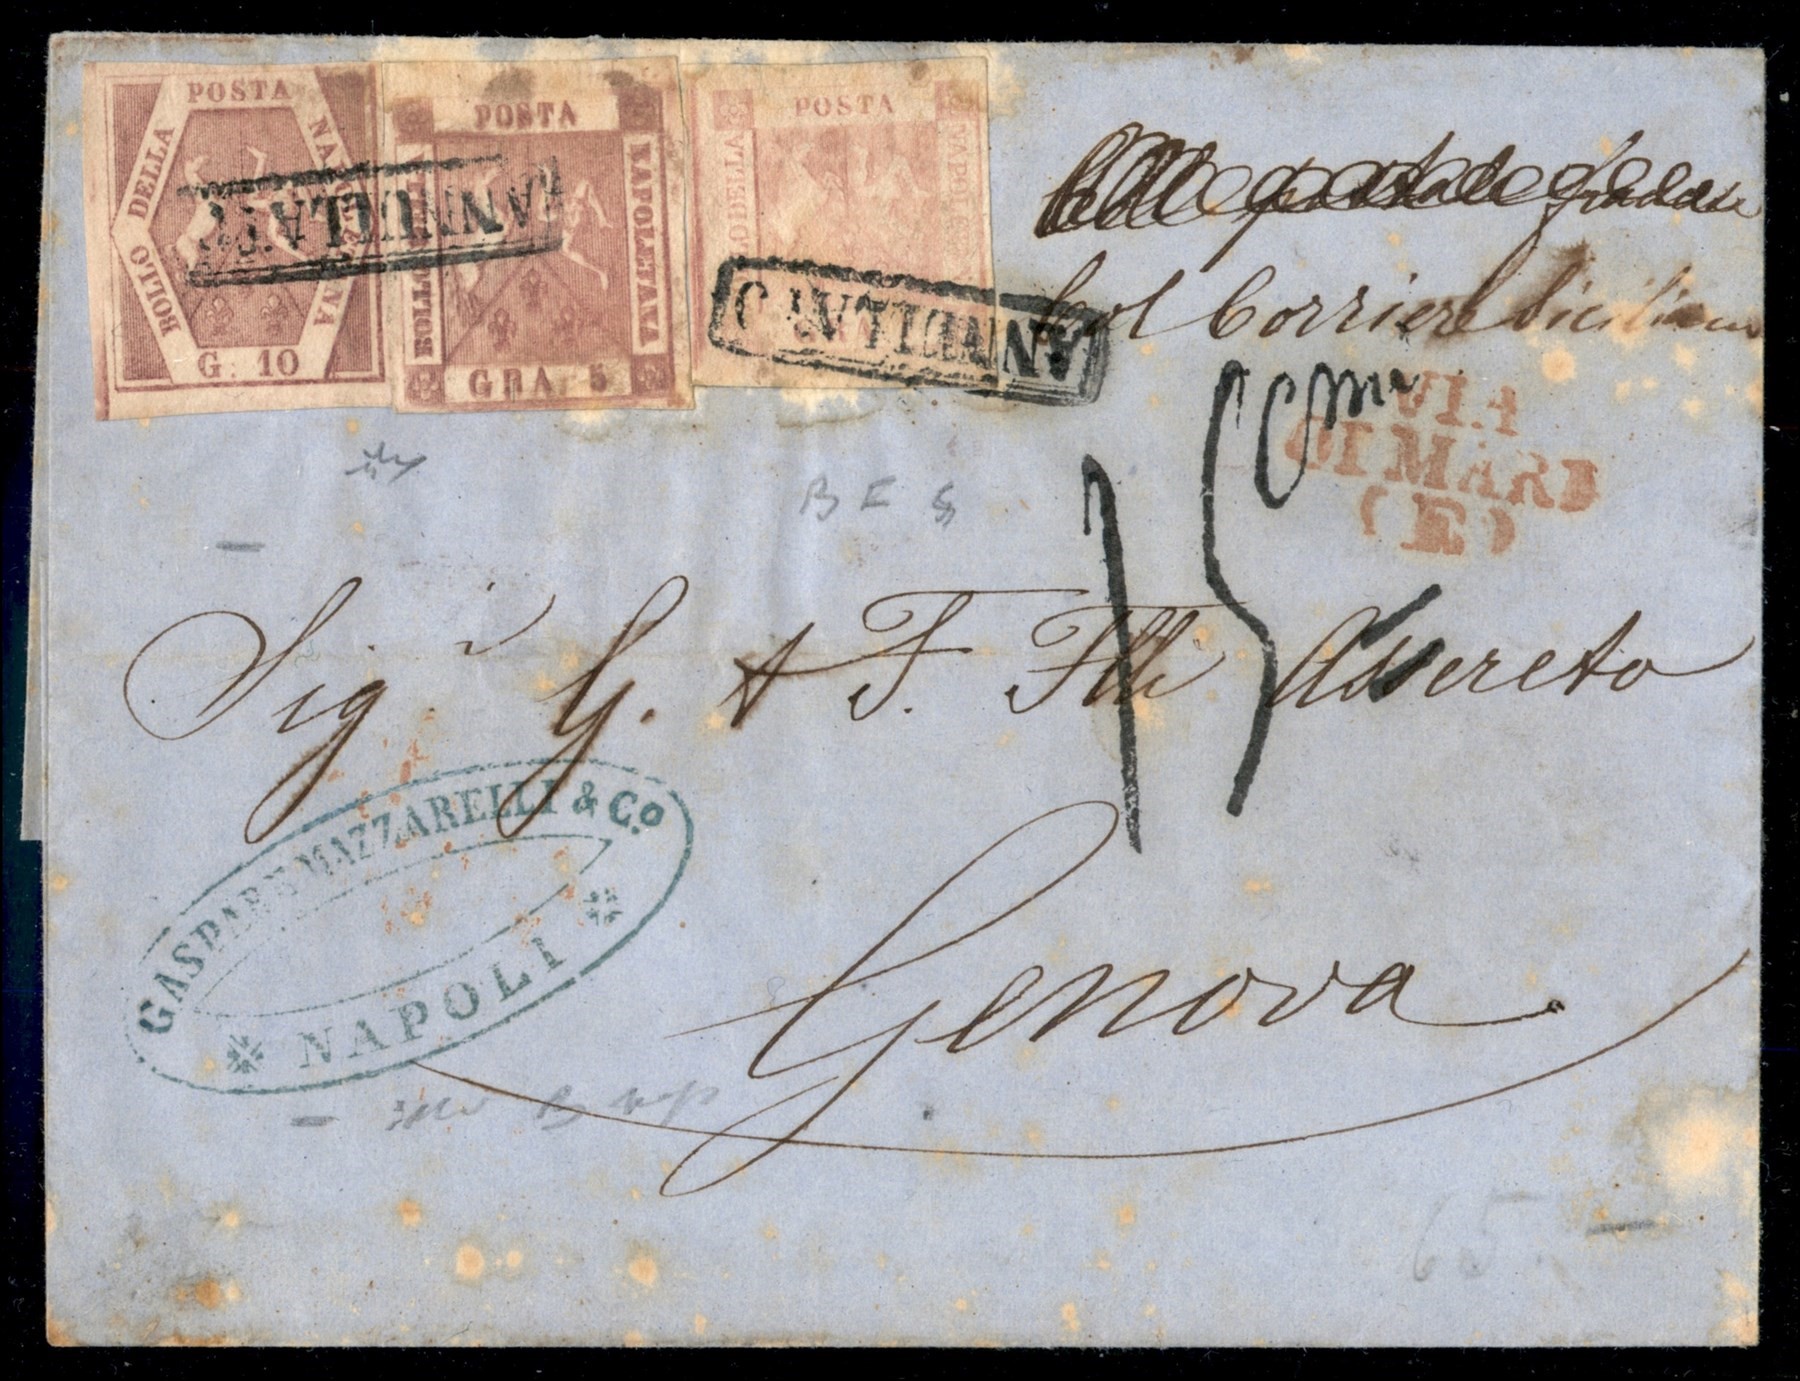 POSTA
BOLLO DELLA
NAPOLETANA
G. 10
POSTA
BOLLO
NAPOLETANA
GRA 5
POSTA
BOLLO DELLA
NAPOL
GRA
ANNULATO
ANNULATO
Col Corriere Siciliano
VIA
DI MARE
(E)
15
Sig.i G. & F. Flli Assereto
GASPARE MAZZARELLI & C.o
NAPOLI
Genova
65